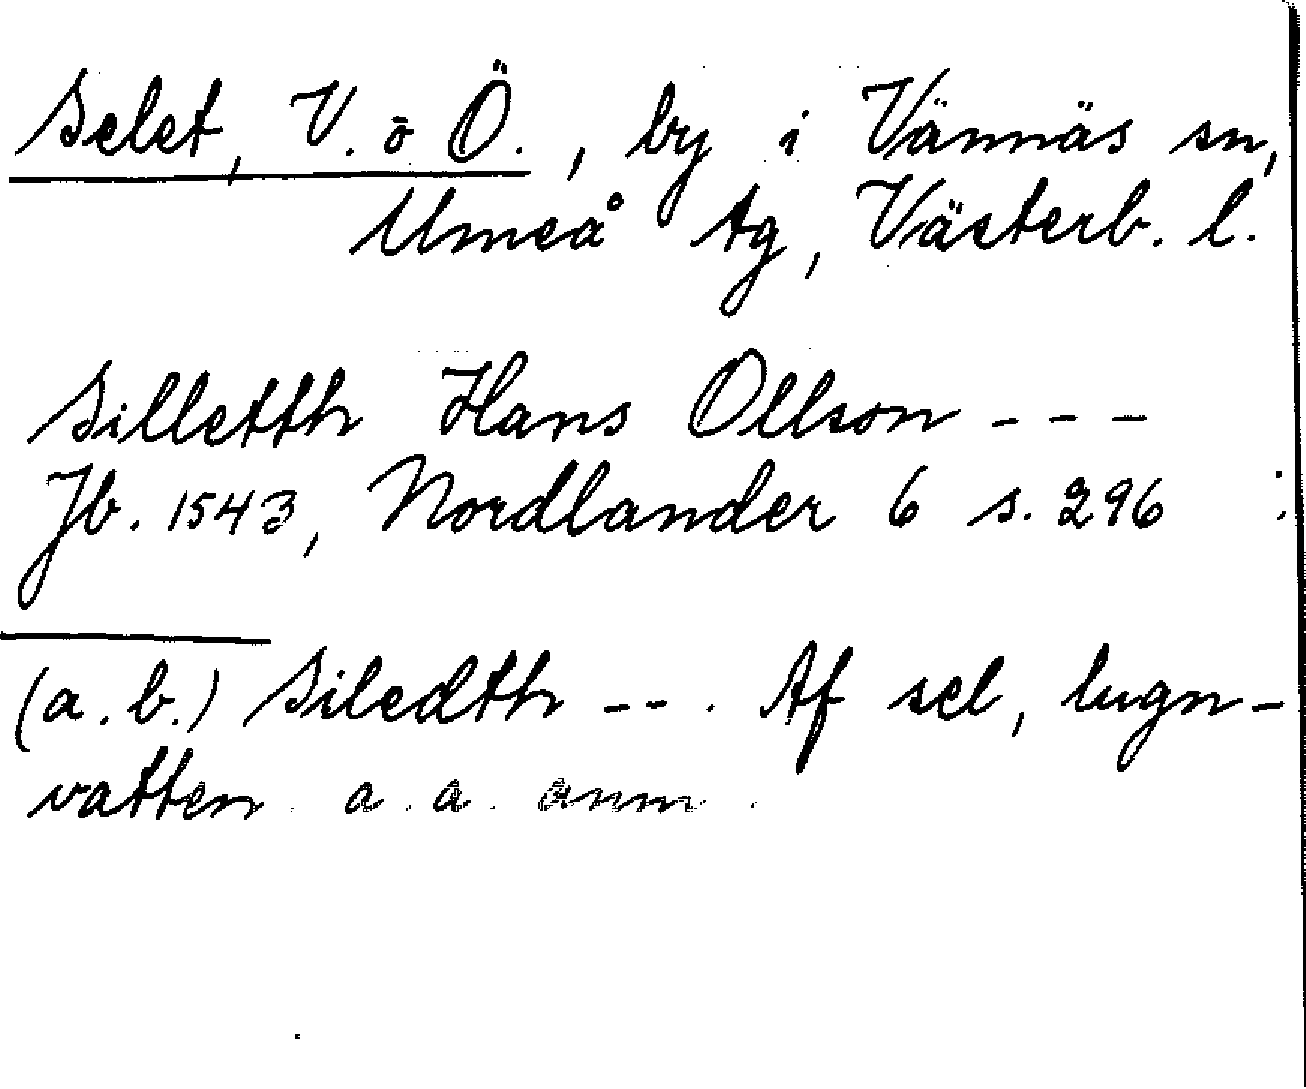 Selet, V. o Ö., by i Vännäs sn,
Umeå tg, Västerb. l.
Silletth Hans Ollson - - -
Jb. 1543, Nordlander 6 s. 296
(a. b.) Siledth - - . Af sel, lugn-
vatten a. a. anm.